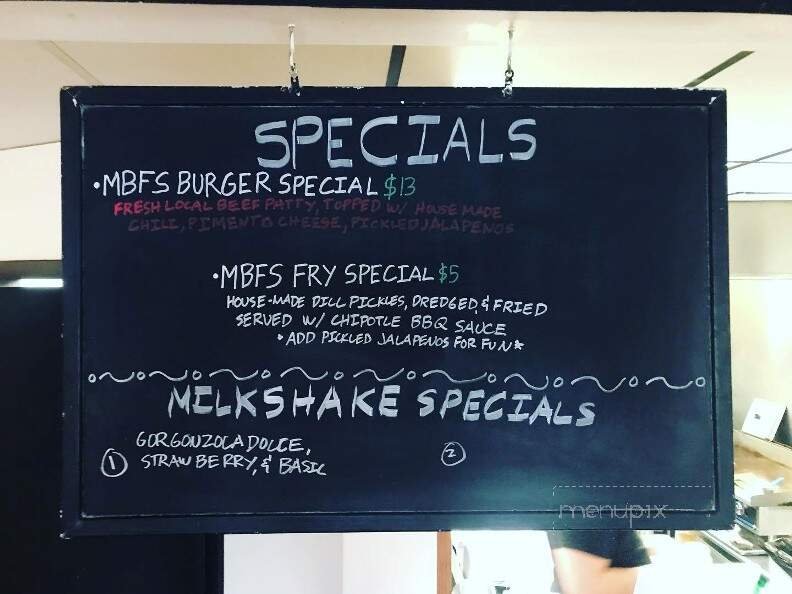 SPECIALS
•MBFS BURGER SPECIAL $13
FRESH LOCAL BEEF PATTY, TOPPED W/ HOUSE MADE
CHILI, PIMENTO CHEESE, PICKLED JALAPENOS
•MBFS FRY SPECIAL $5
HOUSE-MADE DILL PICKLES, DREDGED & FRIED
SERVED W/ CHIPOTLE BBQ SAUCE
• ADD PICKLED JALAPENOS FOR FUN*
MILKSHAKE SPECIALS
① GORGONZOLA DOLCE,
STRAWBERRY, & BASIL
②
menupix